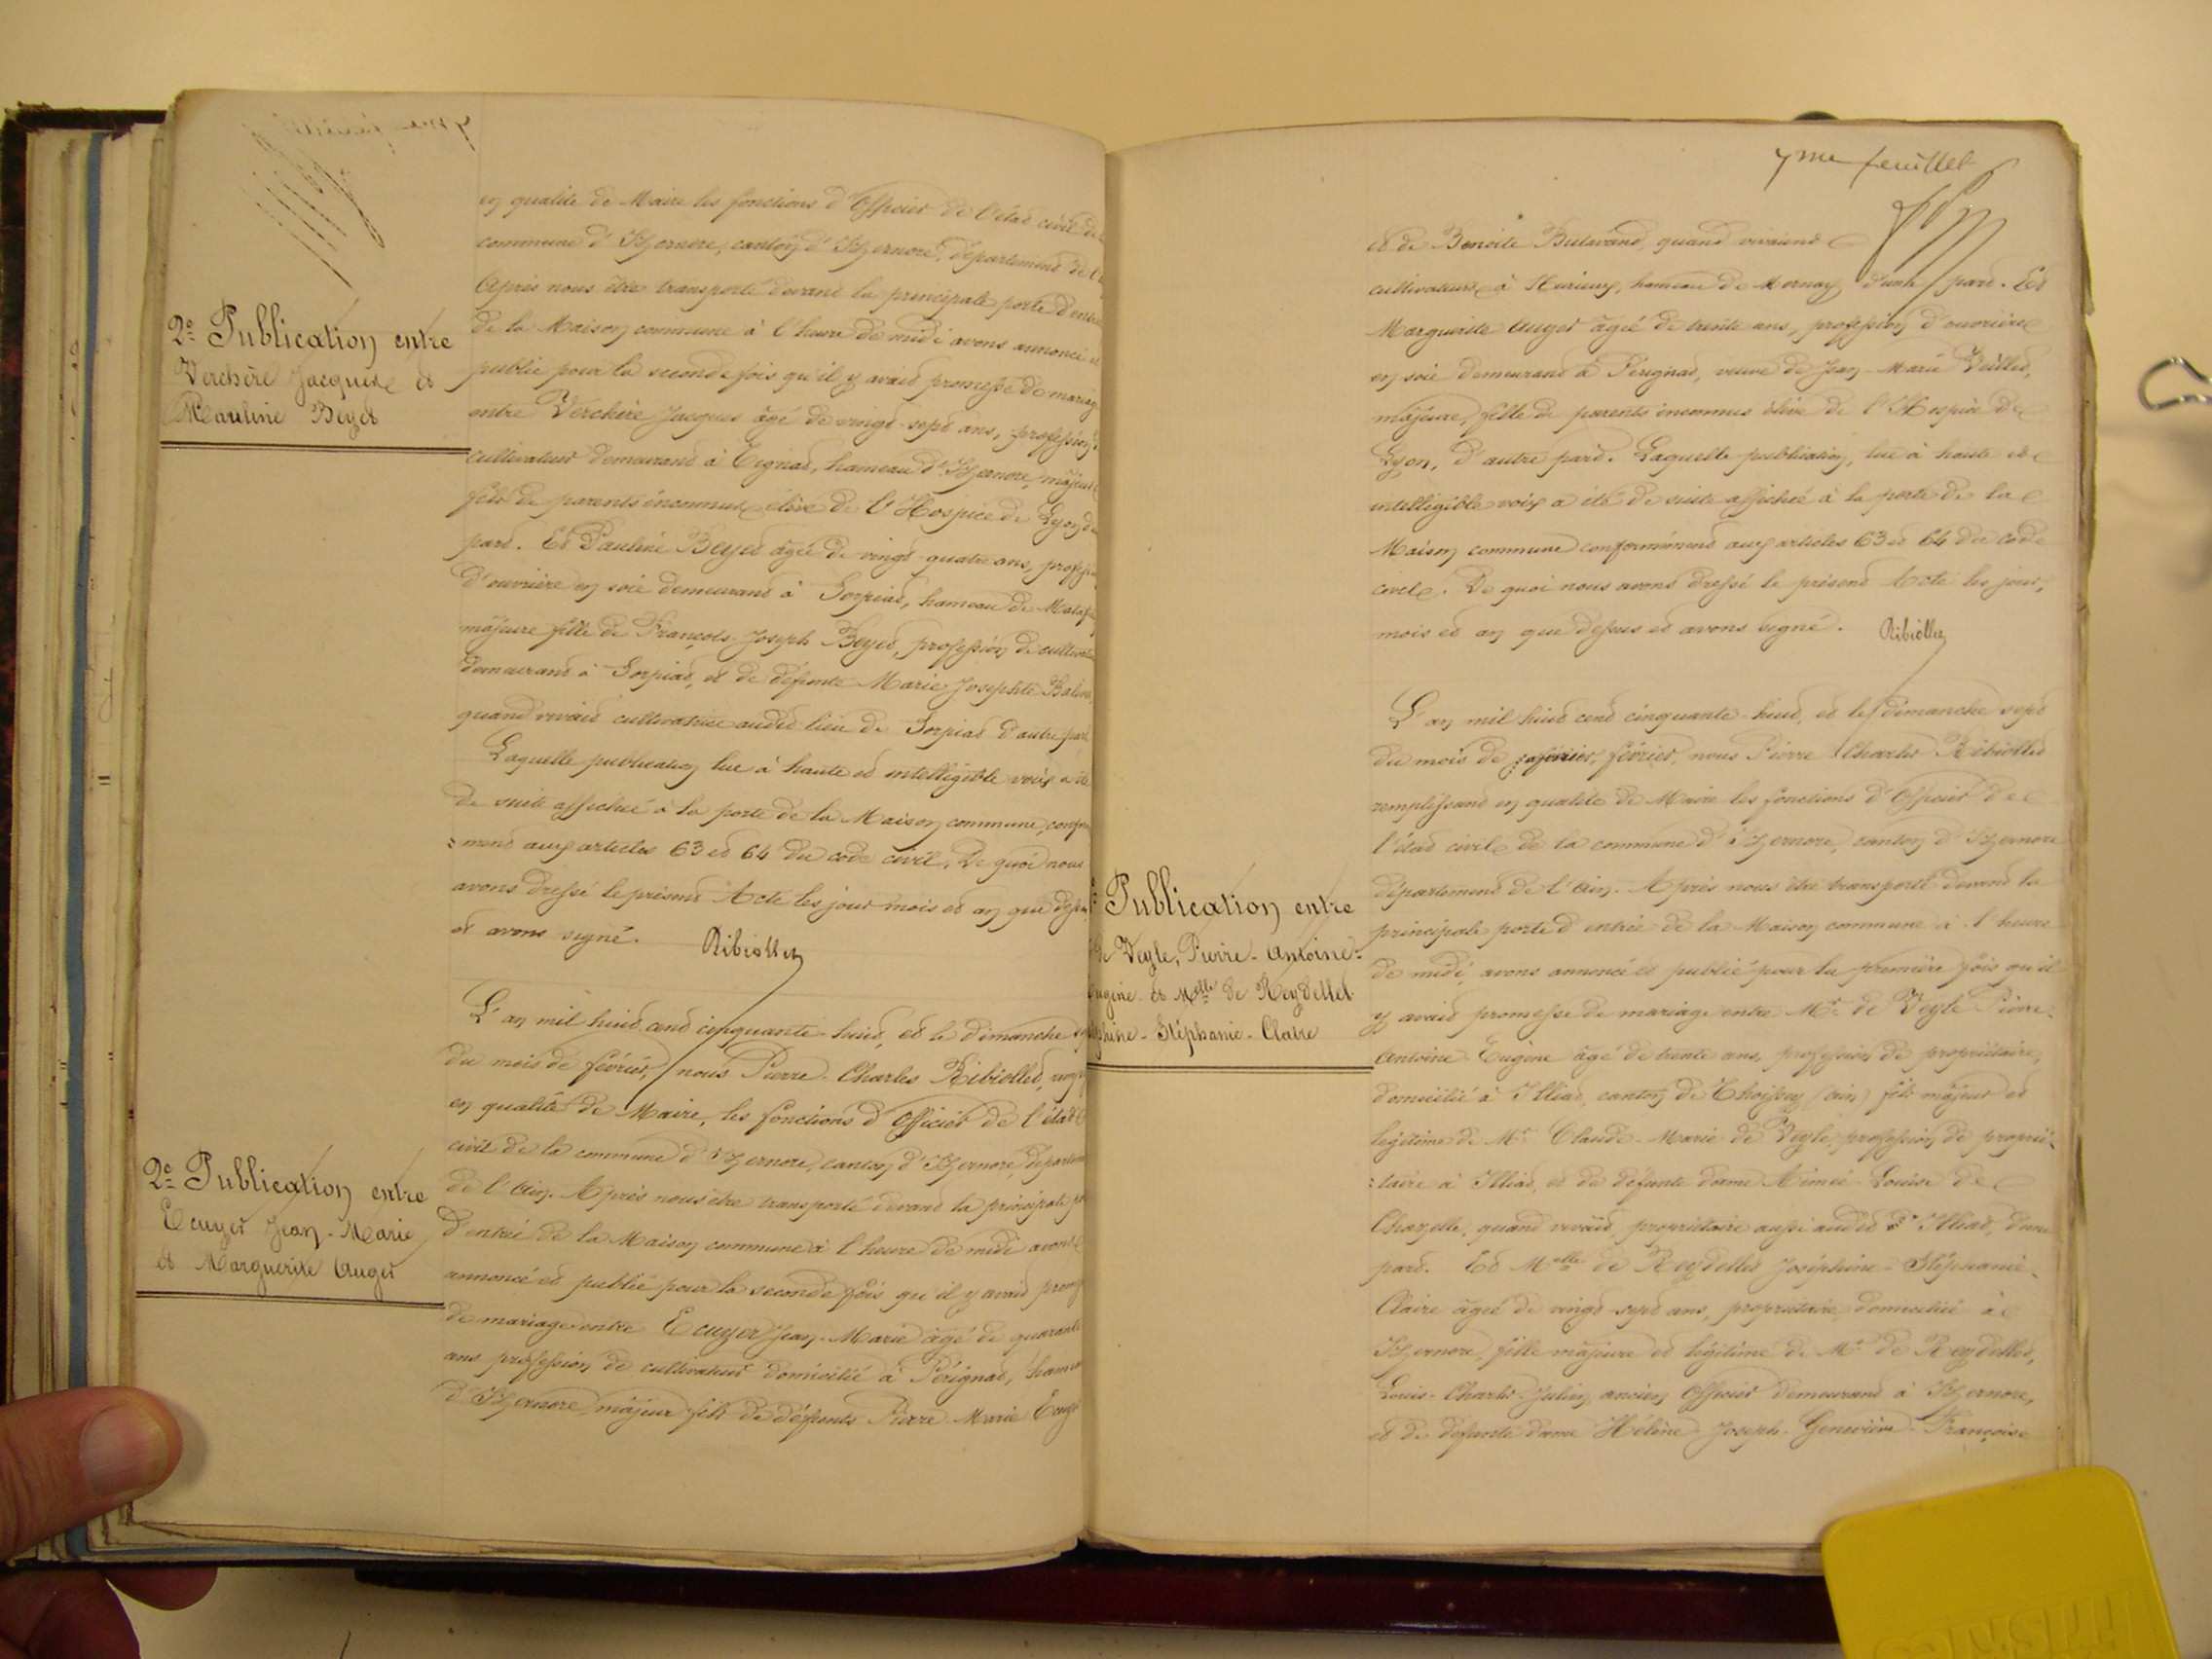 en qualité de Maire les fonctions d'Officier de l'état civil de
commune d'Izernore, canton d'Izernore, département de l'
Après nous être transporté devant la principale porte d'entrée
2e Publication entre
Verchère Jacques et
Pauline Beyet
de la Maison commune à l'heure de midi avons annoncé et
publié pour la seconde fois qu'il y avait promesse de mariage
entre Verchère Jacques âgé de vingt-sept ans, profession
cultivateur demeurant à Tignat, hameau d'Izernore, majeur
fils de parents inconnus élève de l'Hospice de Lyon d
part. Et Pauline Beyet âgée de vingt-quatre ans, profession
d'ouvrière en soie demeurant à Sorpiat, hameau de Mataf
majeure fille de François-Joseph Beyet, profession de cultivateur
demeurant à Sorpiat, et de défunte Marie Josephte
quand vivait cultivatrice audit lieu de Sorpiat d'autre part
Laquelle publication lue à haute et intelligible voix a été
de suite affichée à la porte de la Maison commune, confor
=ment aux articles 63 et 64 du code civil. De quoi nous
avons dressé le présent Acte les jour mois et an que dessus
et avons signé. Ribiollet
L'an mil huit cent cinquante-huit, et le dimanche sept
du mois de février, nous Pierre-Charles Ribiollet, remp
en qualité de Maire, les fonctions d'Officier de l'état
civil de la commune d'Izernore, canton d'Izernore, départem
2e Publication entre
Ecuyer Jean-Marie
et Marguerite Auger
de l'Ain. Après nous être transporté devant la principale po
d'entrée de la Maison commune à l'heure de midi avons
annoncé et publié pour la seconde fois qu'il y avait prom
de mariage entre Ecuyer Jean-Marie âgé de quarante
ans profession de cultivateur domicilié à Pérignat, hameau
d'Izernore, majeur fils de défunts Pierre Marie Ecuy
7me feuillet
et de Benoite quand vivaient
cultivateurs à hameau de Mornay d'une part. Et
Marguerite Auger âgée de trente ans, profession d'ouvrière
en soie demeurant à Pérignat, veuve de Jean-Marie
majeure, fille de parents inconnus élève de l'Hospice de
Lyon, d'autre part. Laquelle publication, lue à haute et
intelligible voix a été de suite affichée à la porte de la
Maison commune conformément aux articles 63 et 64 du code
civil. De quoi nous avons dressé le présent Acte les jour,
mois et an que dessus et avons signé. Ribiollet
L'an mil huit cent cinquante-huit, et le dimanche sept
du mois de février, nous Pierre Charles Ribiollet
remplissant en qualité de Maire les fonctions d'Officier de
l'état civil de la commune d'Izernore, canton d'Izernore
Publication entre
de Veyle, Pierre-Antoine-
Eugène et Melle de Reydellet
Stéphanie-Claire
département de l'Ain. Après nous être transporté devant la
principale porte d'entrée de la Maison commune à l'heure
de midi, avons annoncé et publié pour la première fois qu'il
y avait promesse de mariage entre Mr de Veyle Pierre-
Antoine Eugène âgé de trente ans, profession de propriétaire,
domicilié à Illiat, canton de Thoissey (Ain) fils majeur et
légitime de Mr Claude-Marie de Veyle, profession de proprié=
=taire à Illiat, et de défunte dame Aimée-Louise de
Chazelle, quand vivait, propriétaire aussi audit d'Illiat, d'une
part. Et Melle de Reydellet Joséphine-Stéphanie-
Claire âgée de vingt-sept ans, propriétaire, domiciliée à
Izernore, fille majeure et légitime de Mr de Reydellet,
Louis-Charles-Julien, ancien Officier demeurant à Izernore,
et de défunte dame Hélène-Joseph-Geneviève-Françoise